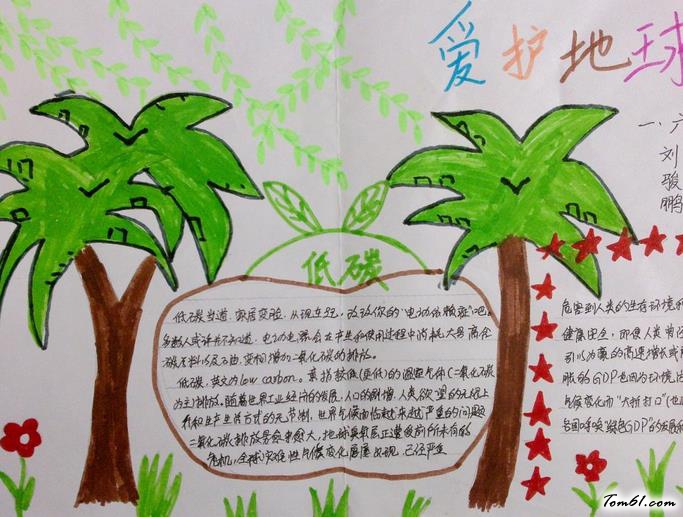 爱护地球
一、六
刘
骏
鹏
低碳
低碳当道，家居变脸，从现在起，改改你的“电动依赖症”吧。
多数人或许并不知道，电力电器会在产生和使用过程中消耗大量高企
碳无料以及石油，变相增加二氧化碳的排放。
低碳，英文为low carbon。意指较低（更低）的温室气体（二氧化碳
为主）排放。随着世界工业经济的发展、人口的剧增、人类欲望的无限上
升和生产生活方式的无节制，世界气候面临越来越严重的问题
二氧化碳排放量愈来愈大，地球臭氧层正遭受前所未有的
危机，全球灾难性气候变化屡屡出现，已经严重
危害到人类的生存环境和
健康安全，即使人类曾
引以为豪的高速增长或
胀的GDP也因为环境污
气候变化而“大打折扣”（也
各国呼唤“绿色GDP”的发展
Tom61.com